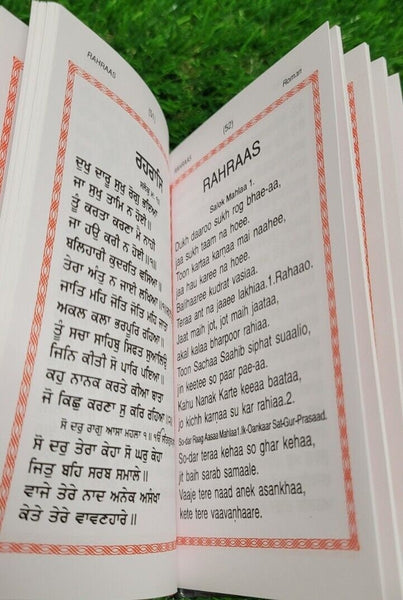 RAHRAAS
(51)
ਰਹਰਾਸਿ
ਸਲੋਕੁ ਮਃ ੧॥
ਦੁਖੁ ਦਾਰੂ ਸੁਖੁ ਰੋਗੁ ਭਇਆ
ਜਾ ਸੁਖੁ ਤਾਮਿ ਨ ਹੋਈ॥
ਤੂੰ ਕਰਤਾ ਕਰਣਾ ਮੈ ਨਾਹੀ
ਜਾ ਹਉ ਕਰੀ ਨ ਹੋਈ॥੧॥
ਬਲਿਹਾਰੀ ਕੁਦਰਤਿ ਵਸਿਆ॥
ਤੇਰਾ ਅੰਤੁ ਨ ਜਾਈ ਲਖਿਆ॥
ਜਾਤਿ ਮਹਿ ਜੋਤਿ ਜੋਤਿ ਮਹਿ ਜਾਤਾ
ਅਕਲ ਕਲਾ ਭਰਪੂਰਿ ਰਹਿਆ॥
ਤੂੰ ਸਚਾ ਸਾਹਿਬੁ ਸਿਫਤਿ ਸੁਆਲਿ੍ਉ
ਜਿਨਿ ਕੀਤੀ ਸੋ ਪਾਰਿ ਪਇਆ॥
ਕਹੁ ਨਾਨਕ ਕਰਤੇ ਕੀਆ ਬਾਤਾ
ਜੋ ਕਿਛੁ ਕਰਣਾ ਸੁ ਕਰਿ ਰਹਿਆ॥
ਸੋ ਦਰੁ ਰਾਗੁ ਆਸਾ ਮਹਲਾ ੧॥
ਸੋ ਦਰੁ ਤੇਰਾ ਕੇਹਾ ਸੋ ਘਰੁ ਕੇਹਾ
ਜਿਤੁ ਬਹਿ ਸਰਬ ਸਮਾਲੇ॥
ਵਾਜੇ ਤੇਰੇ ਨਾਦ ਅਨੇਕ ਅਸੰਖਾ
ਕੇਤੇ ਤੇਰੇ ਵਾਵਣਹਾਰੇ॥
RAHRAAS (52) Roman
RAHRAAS
Salok Mahlaa 1.
Dukh daaroo sukh rog bhae-aa,
jaa sukh taam na hoee.
Toon kartaa karnaa mai naahee,
jaa hau karee na hoee.
Balihaaree kudrat vasiaa.
Teraa ant na jaaee lakhiaa.1.Rahaao.
Jaat maih jot, jot maih jaataa,
akal kalaa bharpoor rahiaa.
Toon Sachaa Saahib siphat suaalio,
jin keetee so paar pae-aa.
Kahu Nanak Karte keeaa baataa,
jo kichh karnaa su kar rahiaa.2.
So-dar Raag Aasaa Mahlaa1.Ik-Oankaar Sat-Gur-Prasaad.
So-dar teraa kehaa so ghar kehaa,
jit baih sarab samaale.
Vaaje tere naad anek asankhaa,
kete tere vaavaṇhaare.